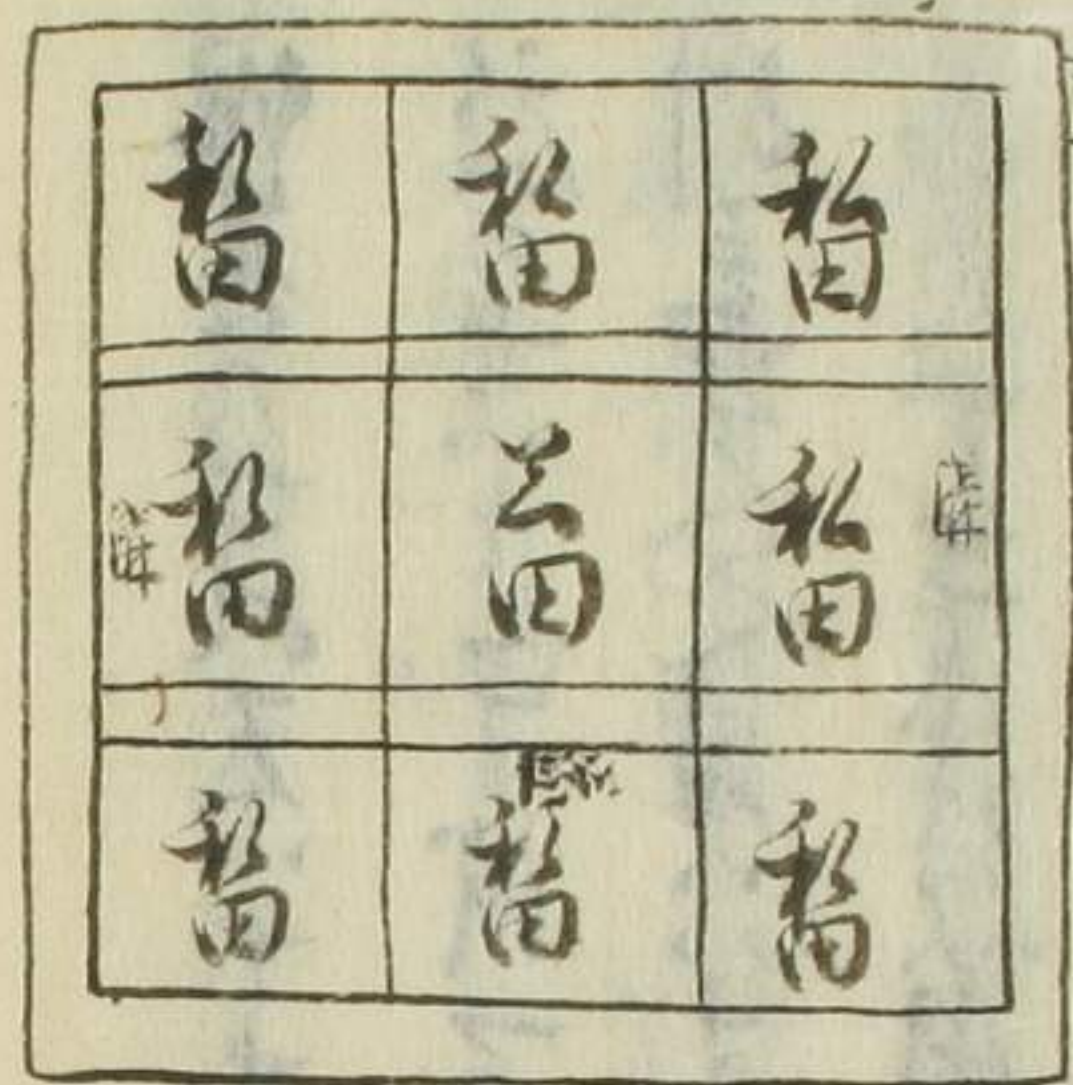 私田 私田 私田
私田 公田 私田
私田 私田 私田